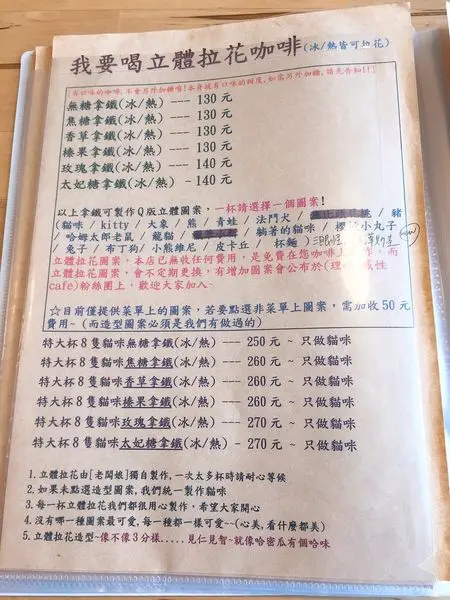 我要喝立體拉花咖啡(冰/熱皆可拉花)
[有口味的咖啡,不會另外加糖唷!本身就有口味的甜度,如需另外加糖,請先告知!!]
無糖拿鐵(冰/熱) --- 130 元
焦糖拿鐵(冰/熱) --- 130 元
香草拿鐵(冰/熱) --- 130 元
榛果拿鐵(冰/熱) --- 130 元
玫瑰拿鐵(冰/熱) --- 140 元
太妃糖拿鐵(冰/熱) -140 元
以上拿鐵可製作Q版立體圖案,一杯請選擇一個圖案!
(貓咪 / kitty / 大象 / 熊 / 青蛙 / 法鬥犬 / / 豬
/哈姆太郎老鼠 / 龍貓 / / 躺著的貓咪 / 櫻桃小丸子
/兔子 / 布丁狗/ 小熊維尼 / 皮卡丘 / 杯麵 )
立體拉花圖案,本店已無收任何費用,是免費在您咖啡上,而
立體拉花圖案,會不定期更換,有增加圖案會公布於(理性
cafe)粉絲團上,歡迎大家加入~
☆目前僅提供菜單上的圖案,若要點選非菜單上圖案,需加收 50 元
費用~ (而造型圖案必須是我們有做過的)
特大杯 8 隻貓咪無糖拿鐵(冰/熱) --- 250 元 ~ 只做貓咪
特大杯 8 隻貓咪焦糖拿鐵(冰/熱) --- 260 元 ~ 只做貓咪
特大杯 8 隻貓咪香草拿鐵(冰/熱) --- 260 元 ~ 只做貓咪
特大杯 8 隻貓咪榛果拿鐵(冰/熱) --- 260 元 ~ 只做貓咪
特大杯 8 隻貓咪玫瑰拿鐵(冰/熱) --- 270 元 ~ 只做貓咪
特大杯 8 隻貓咪太妃糖拿鐵(冰/熱) - 270 元 ~ 只做貓咪
1.立體拉花由[老闆娘]獨自製作,一次太多杯時請耐心等候
2.如果未點選造型圖案,我們統一製作貓咪
3.每一杯立體拉花我們都很用心製作,希望大家開心
4.沒有哪一種圖案最可愛,每一種都一樣可愛~~(心美,看什麼都美)
5.立體拉花造型~像不像3分樣.....見仁見智~就像哈密瓜有個哈味